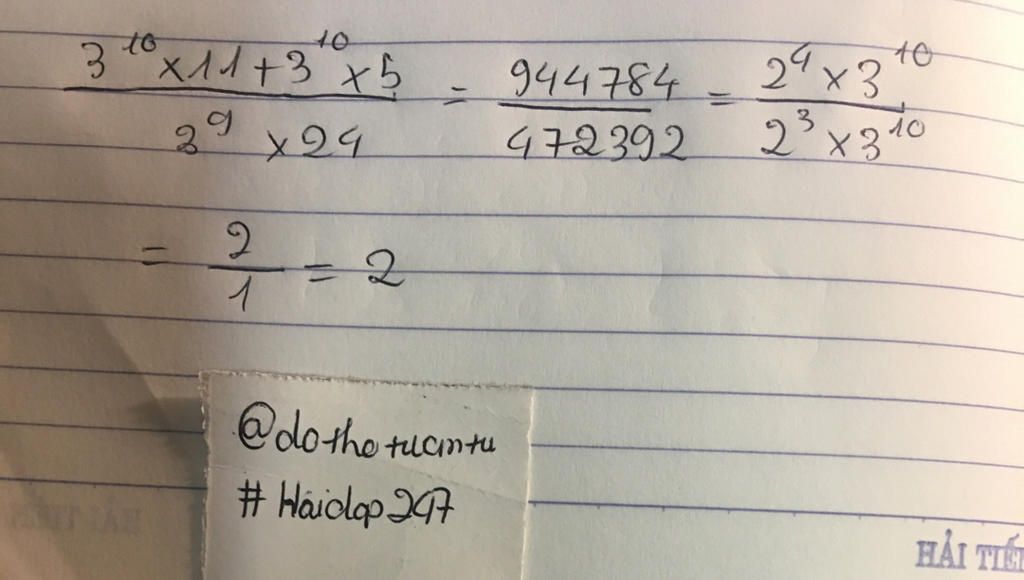 3^10 × 11 + 3^10 × 5 / 3^9 × 24 = 944784 / 472392 = 2^4 × 3^10 / 2^3 × 3^10
= 2 / 1 = 2
@dothotuantu
# Hoidap247
HẢI TIẾN